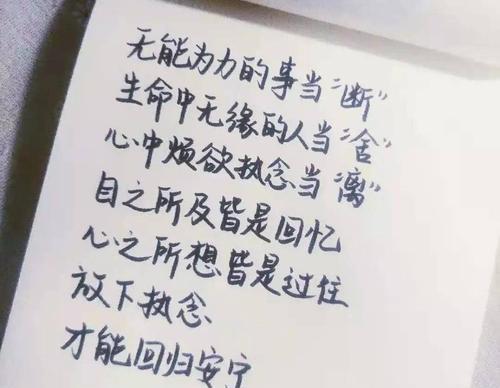 无能为力的事当“断”
生命中无缘的人当“舍”
心中烦欲执念当“离”
目之所及皆是回忆
心之所想皆是过往
放下执念
才能回归安宁